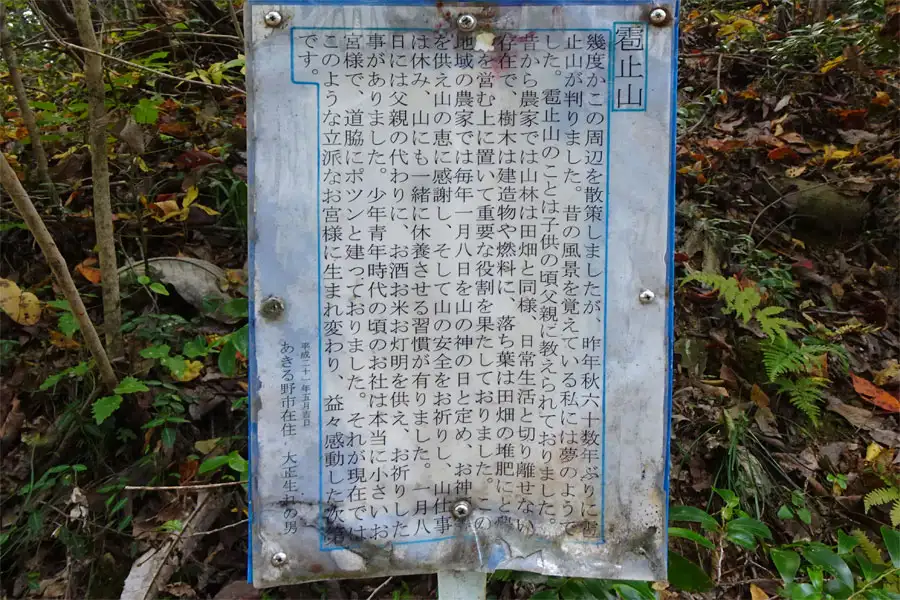 雹止山
幾度かこの周辺を散策しましたが、昨年秋六十数年ぶりに雹
止山が判りました。昔の風景を覚えている私には夢のようで
した。雹止山のことは子供の頃父親に教えられておりました。
昔から農家では山林は田畑と同様、日常生活と切り離せない
存在で、樹木は建造物や燃料に、落ち葉は田畑の堆肥にと
を営む上に置いて重要な役割を果たしておりました。この
地域の農家では毎年一月八日を山の神の日と定め、お神
を供え山の恵に感謝し、そして山の安全をお祈りし、山仕事
は休み、山にも一緒に休養させる習慣が有りました。一月八
日には父親の代わりに、お酒お米お灯明を供え、お祈りした
事がありました。少年青年時代の頃のお社は本当に小さいお
宮様で、道脇にポツンと建っておりました。それが現在では
このような立派なお宮様に生まれ変わり、益々感動した次第
です。
平成二十一年五月吉日
あきる野市在住 大正生れの男